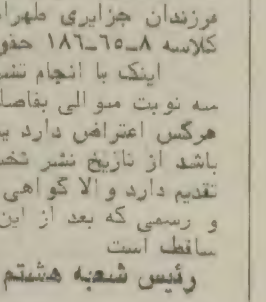 فرزندان جزایری طهرا
کلاسه ۸ـ٦٥ـ۱۸٦ حقو
اینک با انجام تشر
سه نوبت متوالی بفاصله
هرکس اعتراض دارد
باشد از تاریخ نشر نخس
تقدیم دارد و الا گواهی
و رسمی که بعد از این
ساقط است
رئیس شعبه هشتم